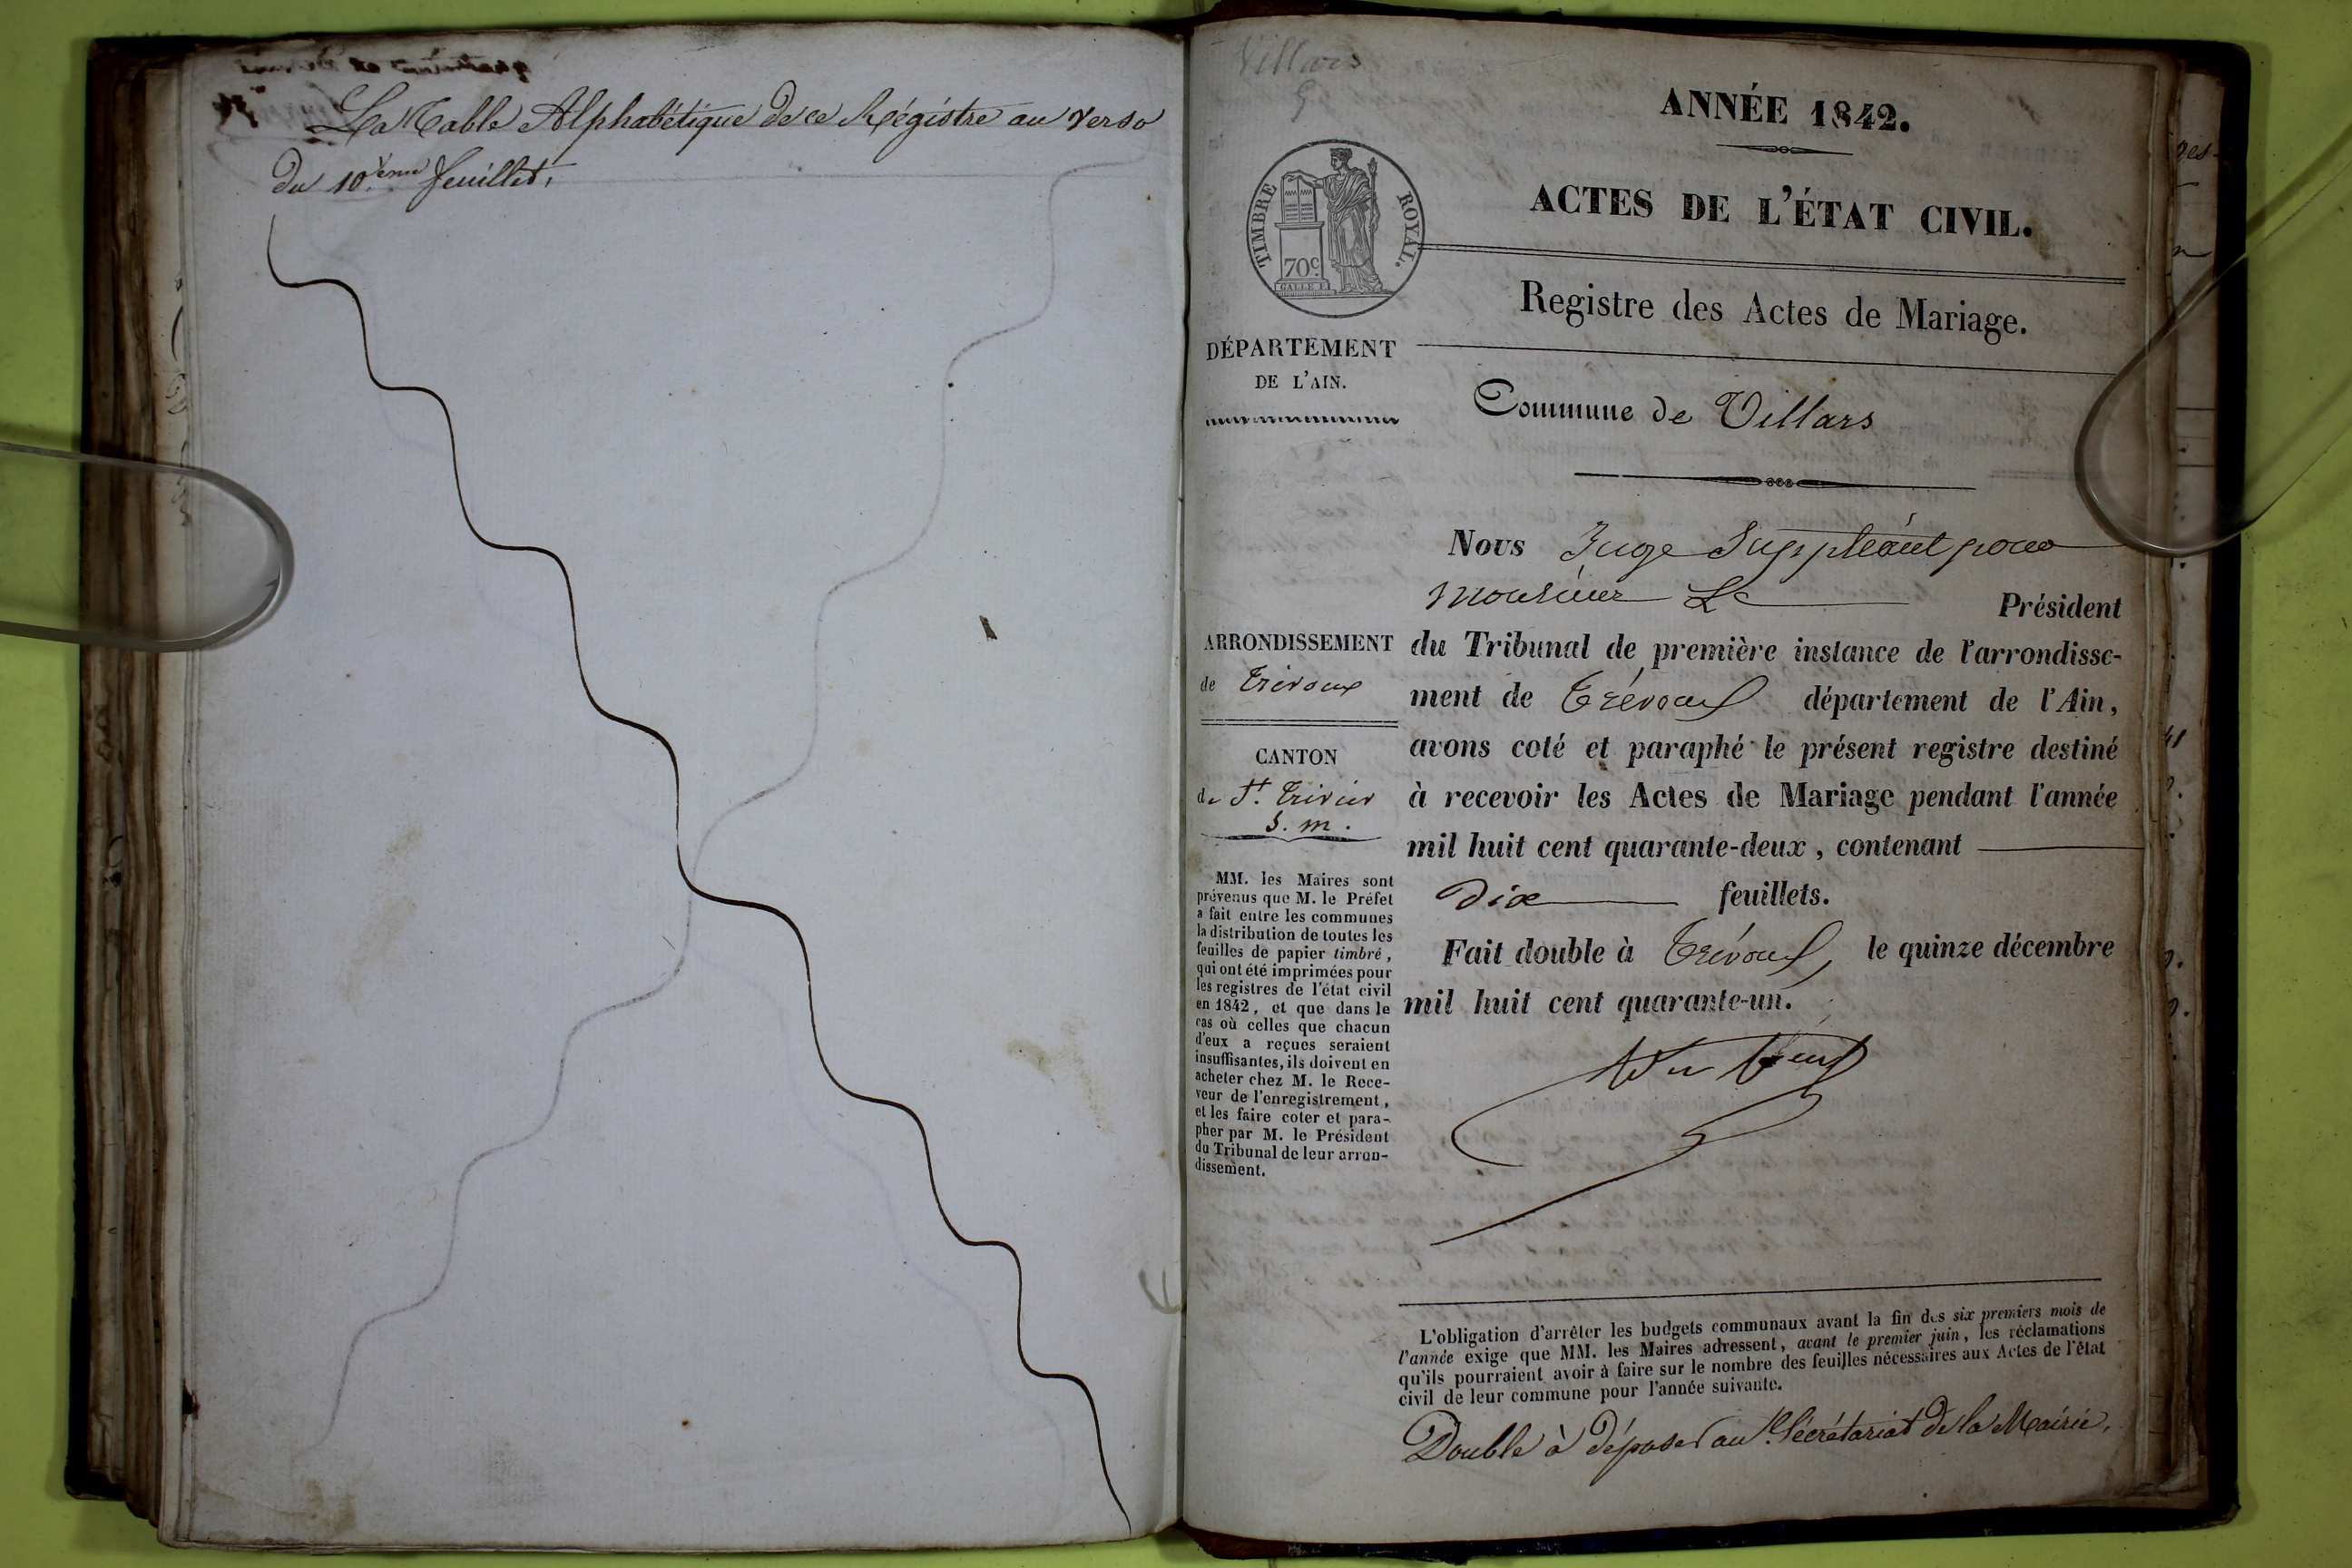 La Table Alphabétique de ce Régistre au verso
du 10.ème feuillet,
Villars
ANNÉE 1842.
ACTES DE L'ÉTAT CIVIL.
TIMBRE ROYAL.
70c
Registre des Actes de Mariage.
DÉPARTEMENT
DE L'AIN.
Commune de Villars
ARRONDISSEMENT
de Trévoux
CANTON
de St. Trivier
s. m.
MM. les Maires sont
prévenus que M. le Préfet
a fait entre les communes
la distribution de toutes les
feuilles de papier timbré,
qui ont été imprimées pour
les registres de l'état civil
en 1842, et que dans le
cas où celles que chacun
d'eux a reçues seraient
insuffisantes, ils doivent en
acheter chez M. le Rece-
veur de l'enregistrement,
et les faire coter et para-
pher par M. le Président
du Tribunal de leur arron-
dissement.
Nous Juge Suppléant pour
Monsieur Le Président
du Tribunal de première instance de l'arrondisse-
ment de Trévoux département de l'Ain,
avons coté et paraphé le présent registre destiné
à recevoir les Actes de Mariage pendant l'année
mil huit cent quarante-deux, contenant
Dix feuillets.
Fait double à Trévoux, le quinze décembre
mil huit cent quarante-un.
L'obligation d'arrêter les budgets communaux avant la fin des six premiers mois de
l'année exige que MM. les Maires adressent, avant le premier juin, les réclamations
qu'ils pourraient avoir à faire sur le nombre des feuilles nécessaires aux Actes de l'état
civil de leur commune pour l'année suivante.
Double à déposer au Sécrétariat de la Mairie.